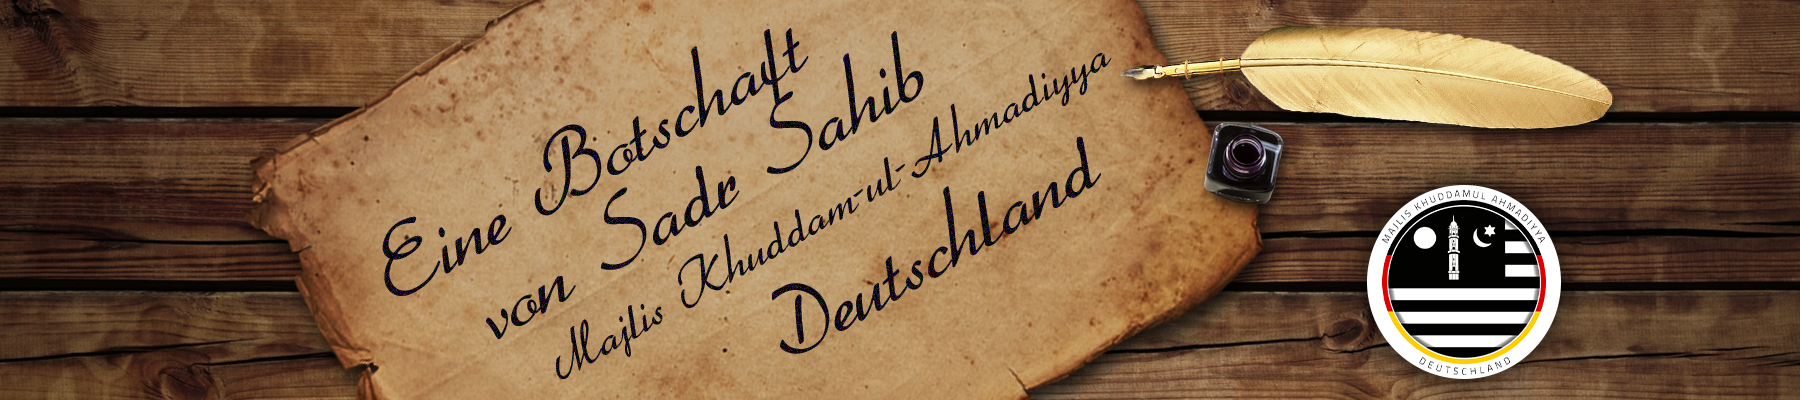 Eine Botschaft
von Sadr Sahib
Majlis Khuddam-ul-Ahmadiyya
Deutschland
MAJLIS KHUDDAMUL AHMADIYYA
DEUTSCHLAND